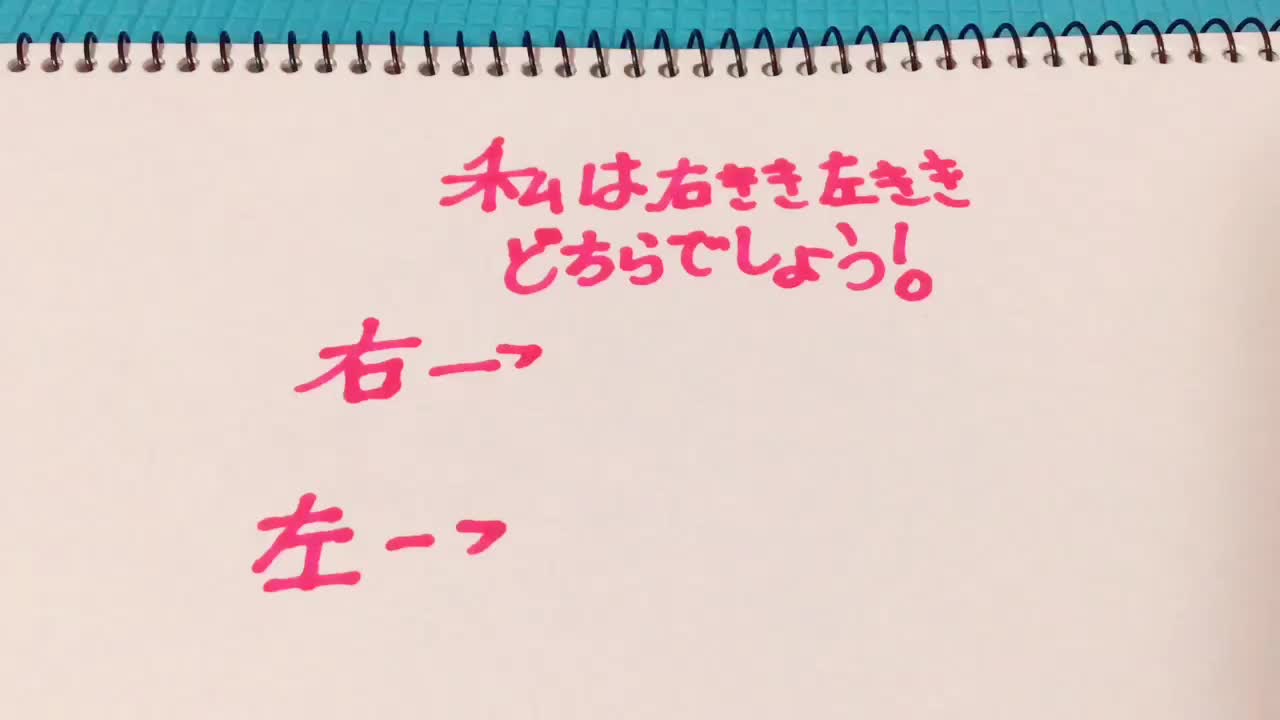 私は右きき左きき
どちらでしょう!
右→
左→